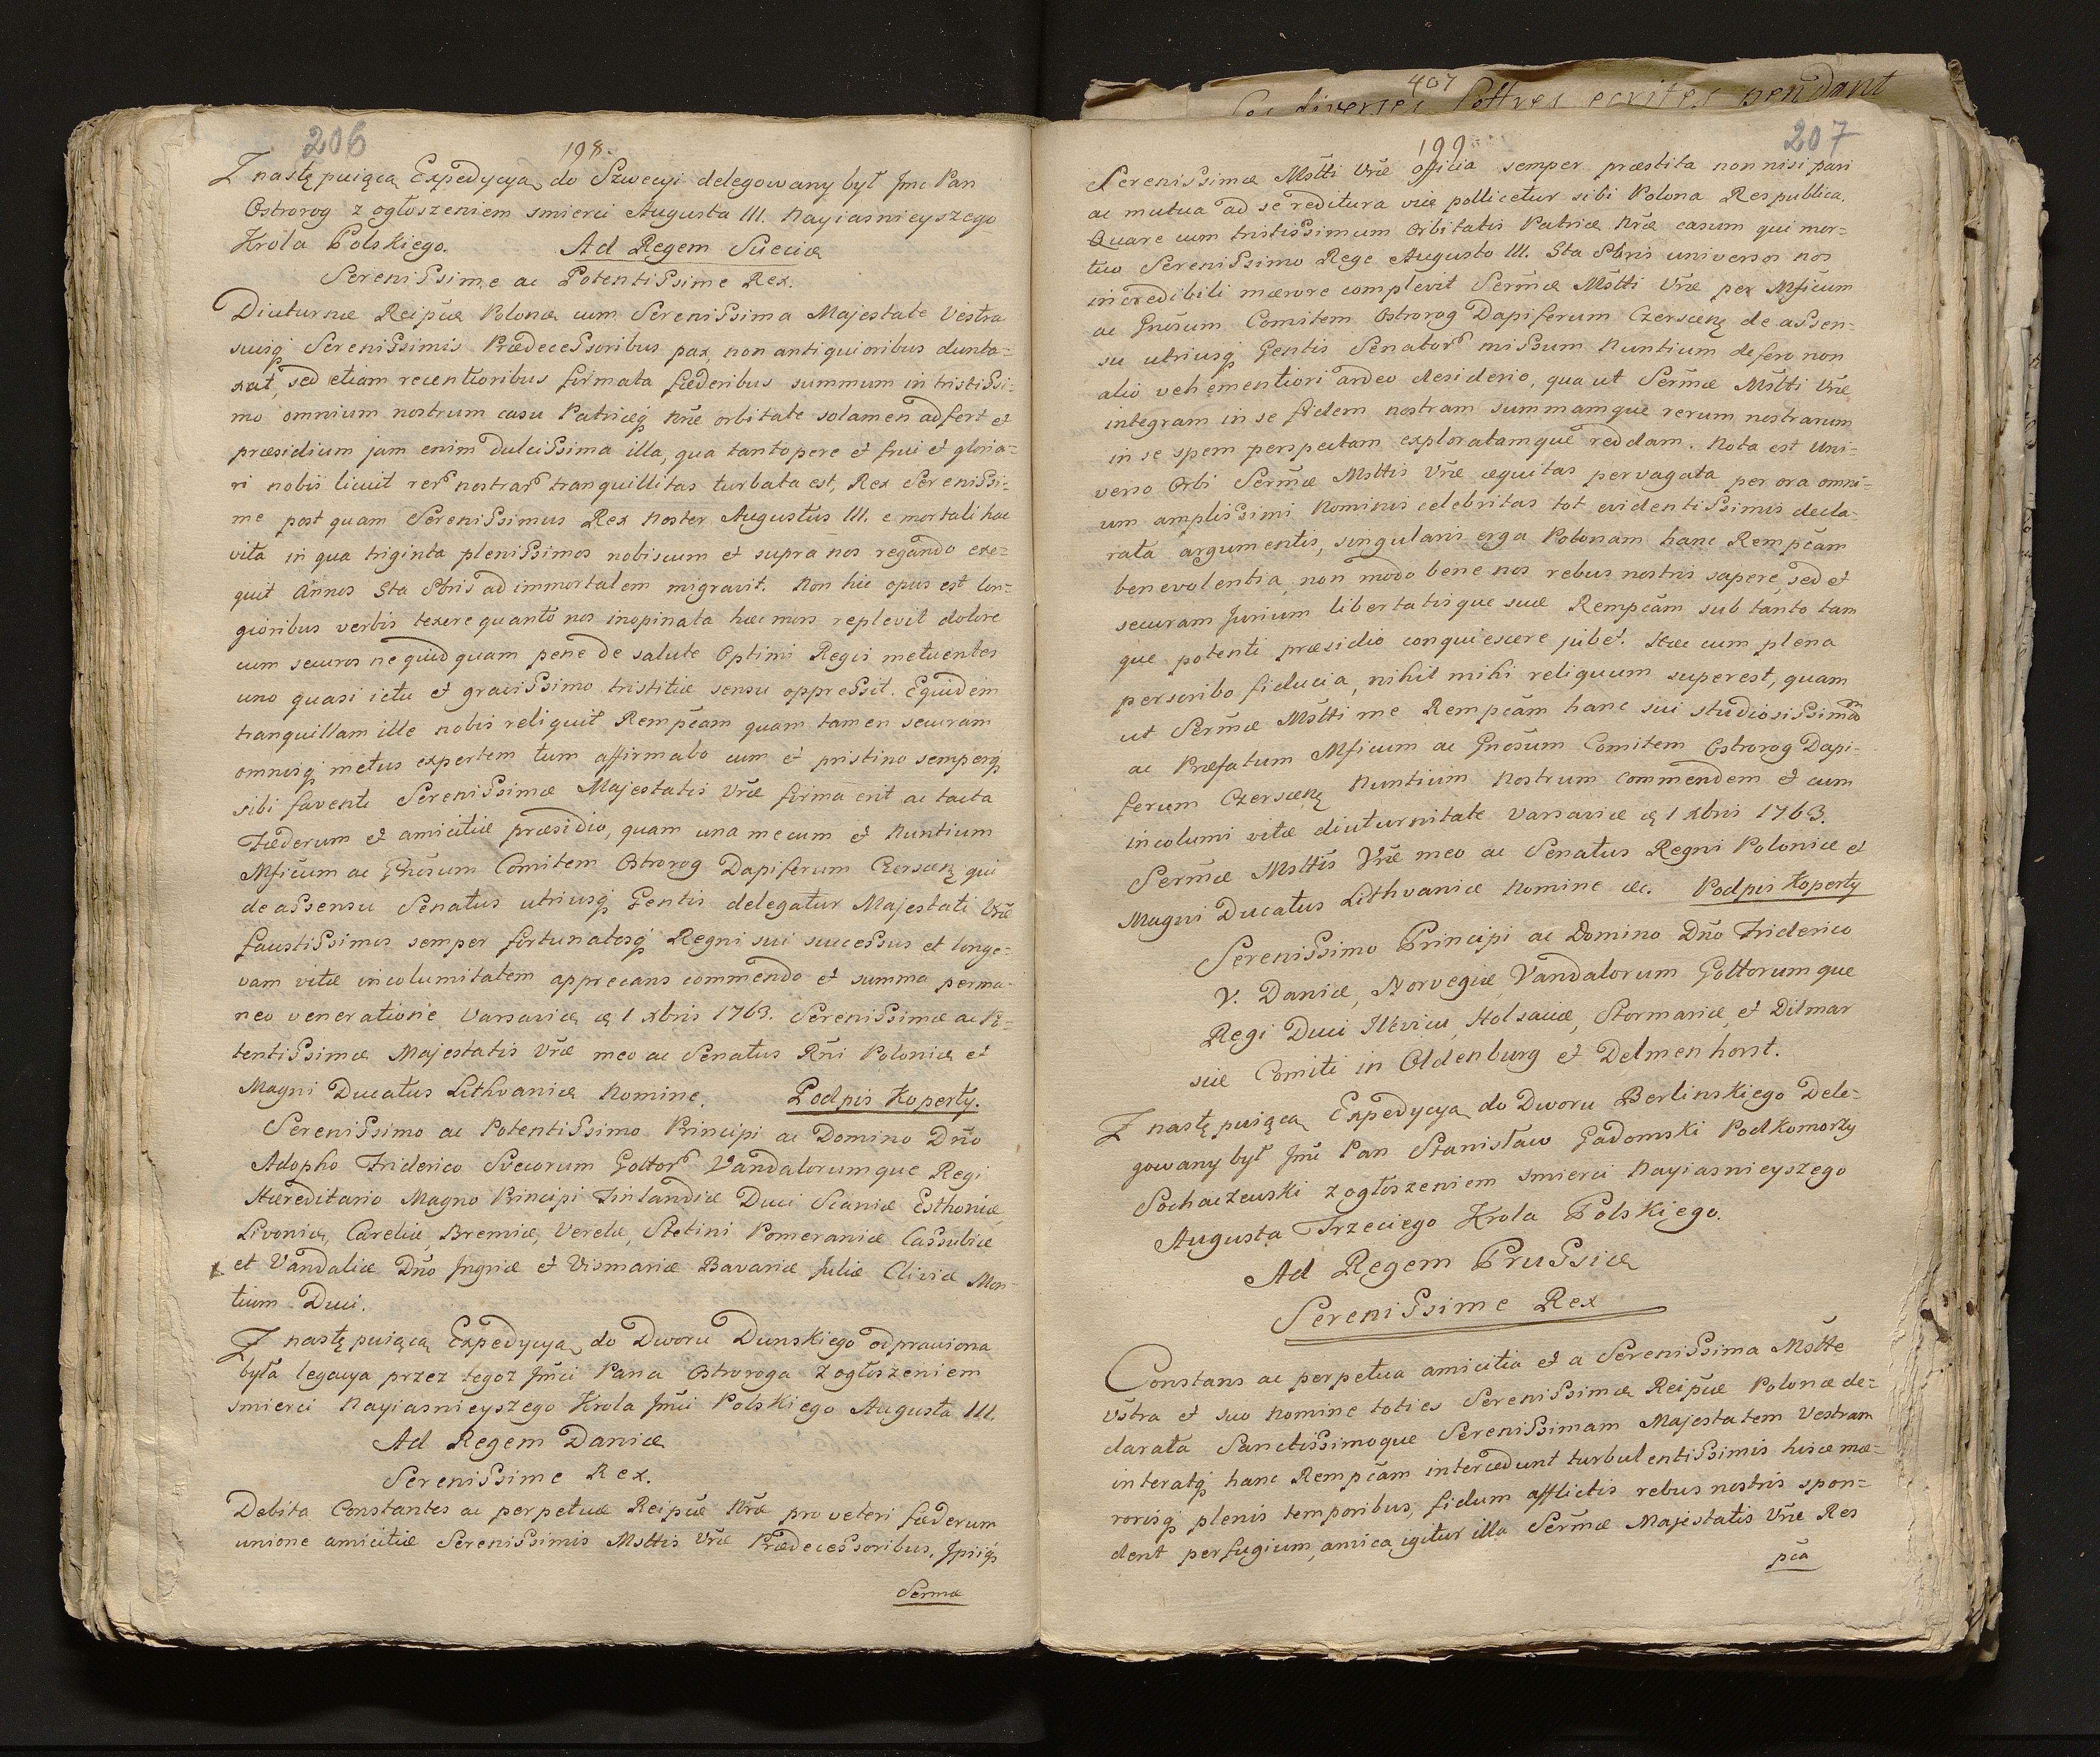 206
198.
Z następuiącą Expedycyą do Szwecyi delegowany był Jmc Pan
Ostrorog z ogłoszeniem smierci Augusta III. Nayiasnieyszego
Krola Polskiego. Ad Regem Sueciæ
Serenissime ac Potentissime Rex.
Diuturnæ Reipúæ Polonæ cum Serenissima Majestate Vestra
suisq Serenissimis Prædecessoribus pax, non antiquioribus dunta=
xat, sed etiam recentioribus firmata fœderibus summum in tristissi=
mo omnium nostrum casu Patriæq Nræ orbitate solamen adfert et
præsidium jam enim dulcissima illa, qua tantopere et frui et gloria=
ri nobis licuit rer nostrar tranquillitas turbata est, Rex Serenissi=
me post quam Serenissimus Rex Noster Augustus III. e mortali hac
vita in qua triginta plenissimos nobiscum et supra nos regando exe=
guit Annos 5ta 8bris ad immortalem migravit. Non hic opus est lon=
gioribus verbis texere quanto nos inopinata hæc mors replevit dolore
cum securos ne quid quam pene de salute Optimi Regis metuentes
uno quasi ictu et gravissimo tristitiæ sensu oppressit. Equidem
tranquillam ille nobis reliquit Rempcam quam tamen securam
omnisq metus expertem tum affirmabo cum et pristino semperq
sibi faventi Serenissimæ Majestatis Vræ firma erit ac tacta
Fæderum et amicitiæ præsidio, quam una mecum et Nuntium
Mficum ac Gnosum Comitem Ostrorog Dapiferum Czerscen qui
de assensu Senatus utriusq Gentis delegatur Majestati Vræ
faustissimos semper fortunatosq Regni sui successus et longe=
vam vitæ incolumitatem apprecans commendo et summa perma=
neo veneratione Varsaviæ d 1 xbris 1763. Serenissimæ ac Po=
tentissimæ Majestatis Vræ meo ac Senatus Rni Poloniæ et
Magni Ducatus Lithvaniæ Nomine. Podpis Koperty.
Serenissimo ac Potentissimo Principi ac Domino Dno
Adopho Friderico Svecorum Gottor Vandalorumque Regi
Hæreditario Magno Principi Finlandiæ Duci Scaniæ Esthoniæ
Livoniæ, Careliæ, Bremiæ, Verdæ, Stetini Pomeraniæ Cassubiæ
et Vandaliæ Dno Jngriæ et Vismariæ Bavariæ Juliæ Cliviæ Mon=
tium Duci.
Z następuiącą Expedycyą do Dworu Dunskiego odprawiona
była legacya przez tegoz Jmci Pana Ostroroga z ogłoszeniem
smierci Nayiasnieyszego Krola Jmci Polskiego Augusta III.
Ad Regem Daniæ
Serenissime Rex.
Debita Constantes ac perpetuæ Reipúæ Nræ pro veteri fæderum
unione amicitiæ Serenissimis Msttis Vræ Prædecessoribus, Jpiiqs
Sermæ
407
diverses lettres ecrites pendant
199
207
Serenissimæ Mstti Vræ officia semper præstita non nisi pari
ac mutua ad se reditura vice pollicetur sibi Polona Respublica.
Quare cum tristissimum orbitatis Patriæ Nræ casum qui mor=
tuo Serenissimo Rege Augusto III. 5ta 8bris universos nos
incredibili mærore complevit Sermæ Mstti Vræ per Mficum
ac Gnosum Comitem Ostrorog Dapiferum Czerscen de assen=
su utriusq Gentis Senator missum Nuntium defero non
alio vehementiori ardeo desiderio, qua ut Sermæ Mstti Vræ
integram in se fidem nostram summamque rerum nostrarum
in se spem perspectam exploratamque reddam. Nota est Uni=
verso Orbi Sermæ Msttis Vræ æquitas pervagata per ora omni=
um amplissimi Nominis celebritas tot evidentissimis decla=
rata argumentis, singularis erga Polonam hanc Rempcam
benevolentia, non modo bene nos rebus nostris sapere, sed et
securam Jurium libertatisque suæ Rempcam sub tanto tam
que potenti præsidio conquiescere jubet. Hæc cum plena
perscribo fiducia, nihil mihi reliquum superest, quam
ut Sermæ Mstti me Rempcam hanc sui studiosissimam
ac Præfatum Mficum ac Gnosum Comitem Ostrorog Dapi=
ferum Czerscen Nuntium Nostrum commendem et cum
incolumi vitæ diuturnitate Varsaviæ d 1 xbris 1763.
Sermæ Msttis Vræ meo ac Senatus Regni Poloniæ et
Magni Ducatus Lithvaniæ Nomine &c. Podpis Koperty
Serenissimo Principi ac Domino Dno Friderico
V. Daniæ, Norvegiæ, Vandalorum Gottorumque
Regi Duci Holsaciæ, Stormariæ, et Ditmar
siæ Comiti in Oldenburg et Delmenhorst.
Z następuiącą Expedycyą do Dworu Berlinskiego Dele=
gowany był Jmć Pan Stanisław Gadomski Podkomorzy
Sochaczewski z ogłoszeniem smierci Nayiasnieyszego
Augusta Trzeciego Krola Polskiego.
Ad Regem Prussiæ
Serenissime Rex
Constans ac perpetua amicitia et a Serenissima Mstte
Vstra et suo Nomine toties Serenissimæ Reipúæ Polonæ de=
clarata Sanctissimoque Serenissimam Majestatem Vestram
interatq hanc Rempcam intercedunt turbulentissimis hisce mæ=
rorisq plenis temporibus, fidum afflictis rebus nostris spon=
dent perfugium, amica igitur illa Sermæ Majestatis Vræ Res
pca